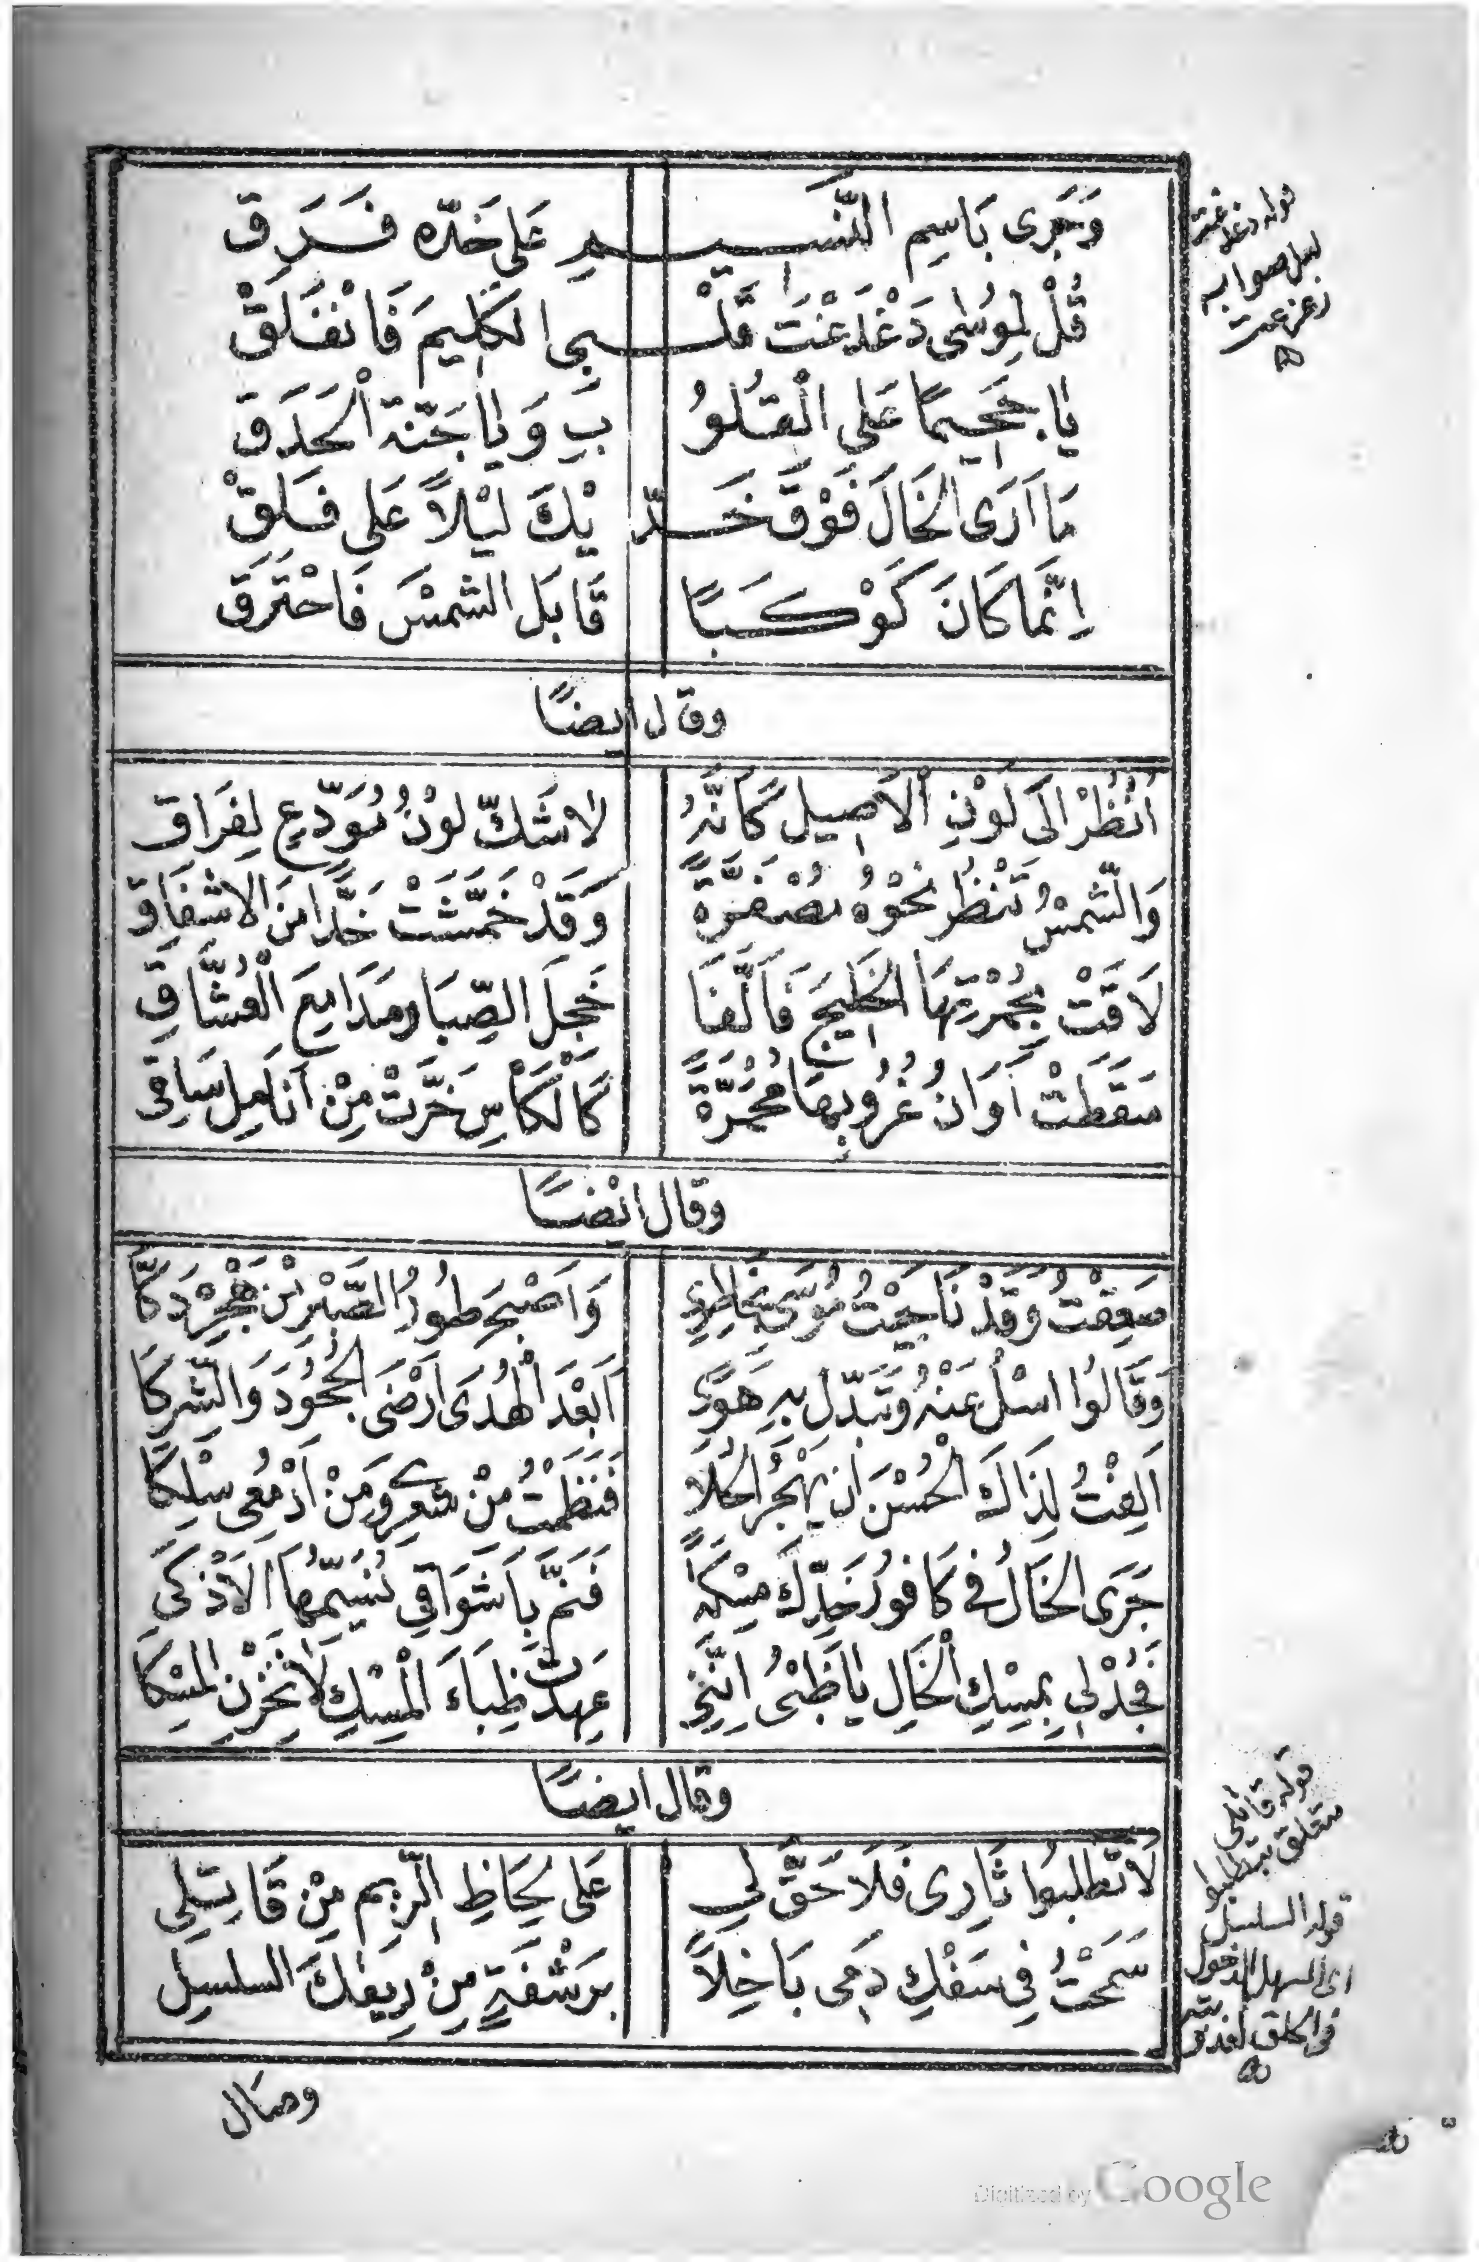 وَجَرَى بَاسِمِ النَّسِيمِ عَلَى خَدّه فَرَق
قُلْ لِمُوسَى دَغْدَغْتَ قَلْبِى الكَلِيمَ فَانْفَلَقْ
يَا جَحِيمًا عَلَى الْقُلُوبِ وَيَا جَنَّةَ الْحَدَق
مَا اَرَى الخَالَ فَوْقَ خَدَّيْكَ لَيْلاً عَلَى فَلَقْ
اِنَّمَا كَانَ كَوْكَبًا قَابَلَ الشَّمْسَ فَاحْتَرَقَ
وقال ايضًا
اُنْظُرْ اِلَى لَوْنِ الْاَصِيلِ كَاَنَّهُ لَاشَكَّ لَوْنُ مُوَدِّعٍ لِفَرَاق
وَالشَّمْسُ تَنْظُرُ نَحْوَهُ مُصْفَرَّةً وَقَدْ خَمَّشَتْ خَدًّا مِنَ الاِشْفَاق
لَاقَتْ بِحُمْرَتِهَا الخَلِيجَ فَاَلَّفَا خَجَلَ الصِّبَا وَمَدَامِعَ الْعُشَّاقِ
سَقَطَتْ اَوَانَ غُرُوبِهَا مُحْمَرَّةً كَالْكَأْسِ خَرَّتْ مِنْ اَنَامِلِ سَاقِى
وقال ايْضًا
صَعِقْتُ وَقَدْ نَاجَيْتُ مُوسَى بِخَاطِرِي وَاَصْبَحَ طُورُ الصَّبْرِ مِنْ هَجْرِهِ دَكَّا
وَقَالُوا اسْلُ عَنْهُ وَتَبَدَّلْ بِهِ هَوًى اَبَعْدَ الْهُدَى اَرْضَى الجُحُودَ وَالشِّرْكَا
اَلِفْتُ لِذَاكَ الحُسْنِ اَنْ يَهْجُرَ الحُلَا فَنَظَمْتُ مِنْ شِعْرِي وَمِنْ اَدْمُعِى سِلْكَا
جَرَى الخَالُ فِى كَافُورِ خَدِّكَ مِسْكَةً فَنَمَّ بِاَشْوَاقِي نُسَيِّمُهَا الاَذْكَى
فَجُدْلِى بِمِسْكِ الْخَالِ يَا ظَبْىُ اِنَّنِي عَهِدْتُ ظِبَاءَ الْمِسْكِ لَا تَخْزُنُ المِسْكَا
وقال ايضًا
لَا تَطْلُبُوا ثَارِى فَلَا حَقَّ لِي عَلَى لِحَاظِ الرِّيمِ مِنْ قَاتِلِى
سَمَحْتُ فِى سَفْكِ دَمِى بَاخِلاً بِرَشْفَةٍ مِنْ رِيقِكَ السلسل
وصَال
قوله دغدغت
لعل صوابه
زعزعت
قوله قاتلى
متعلق بتطلبوا
قوله السلسل
اى السهل الدخول
فى الحلق لعذوبته
Digitized by Google